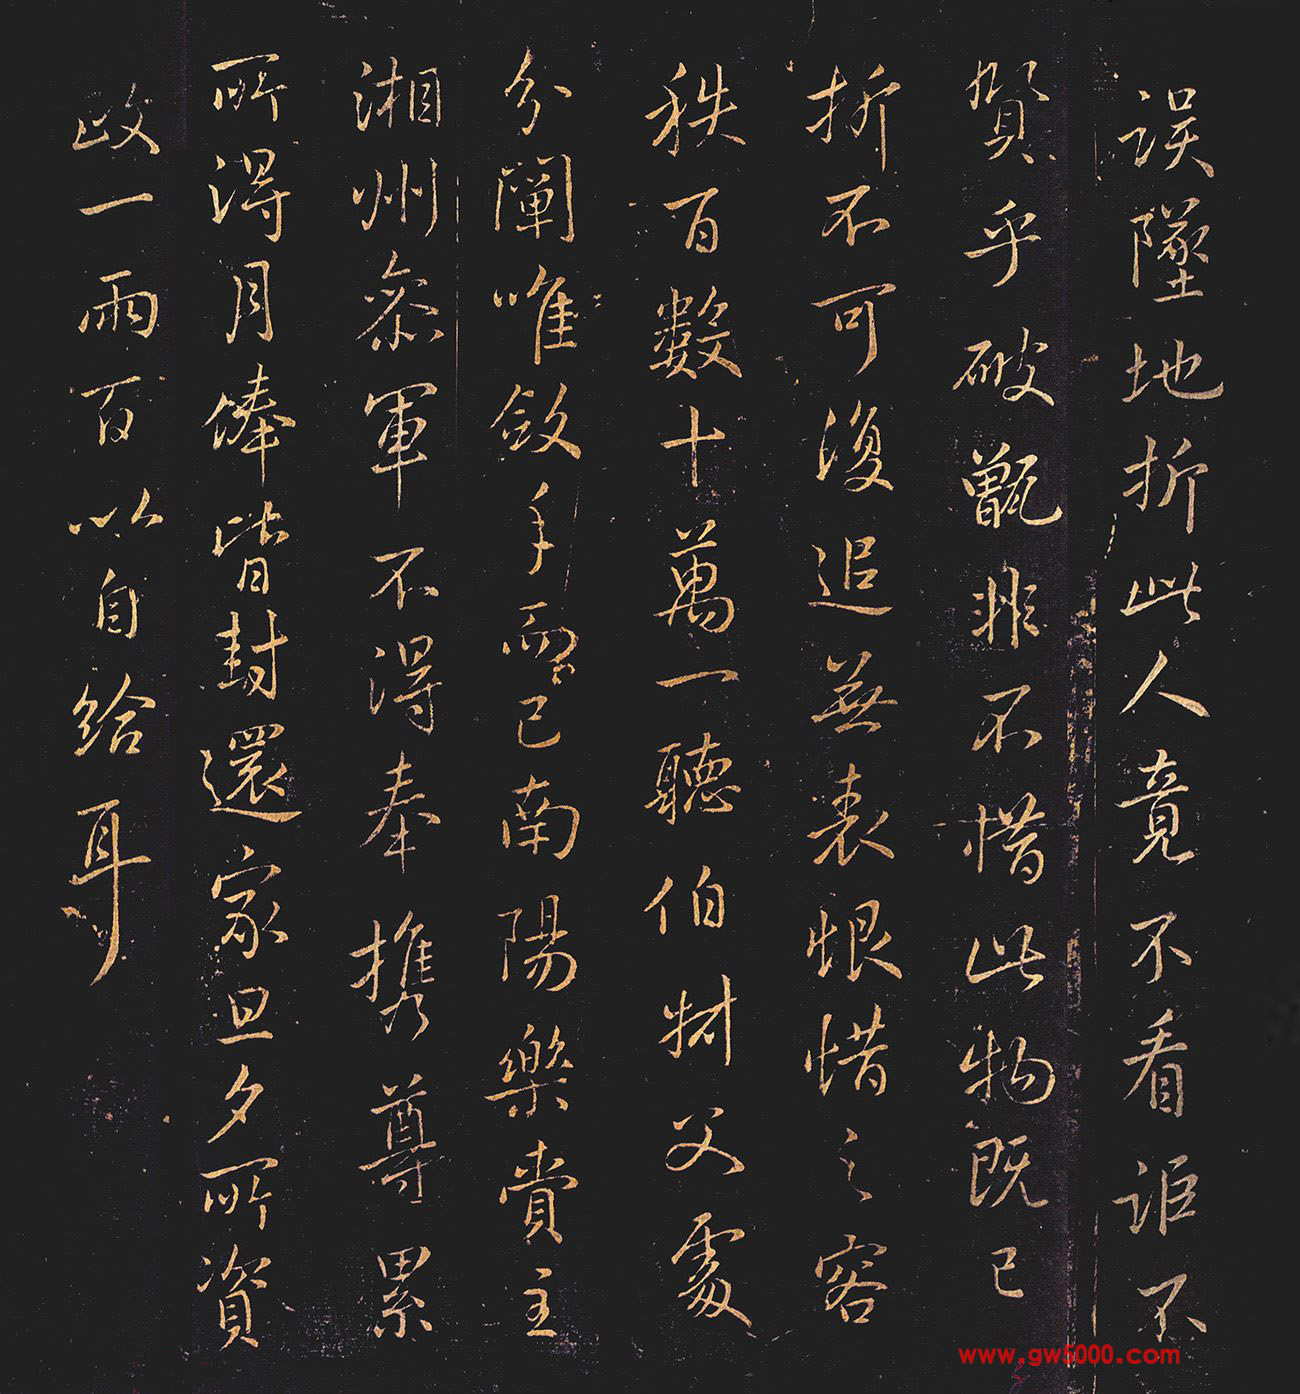 误墜地折此人竟不看詎不
賢乎破甑非不惜此物既已
折不可復追並無表恨惜之容
秩百數十萬一聽伯父處
分闡唯斂手而已南陽樂賞主
湘州參軍不得奉攜尊累
所得月俸皆封還家旦夕所資
政一兩百以自給耳
www.gw5000.com